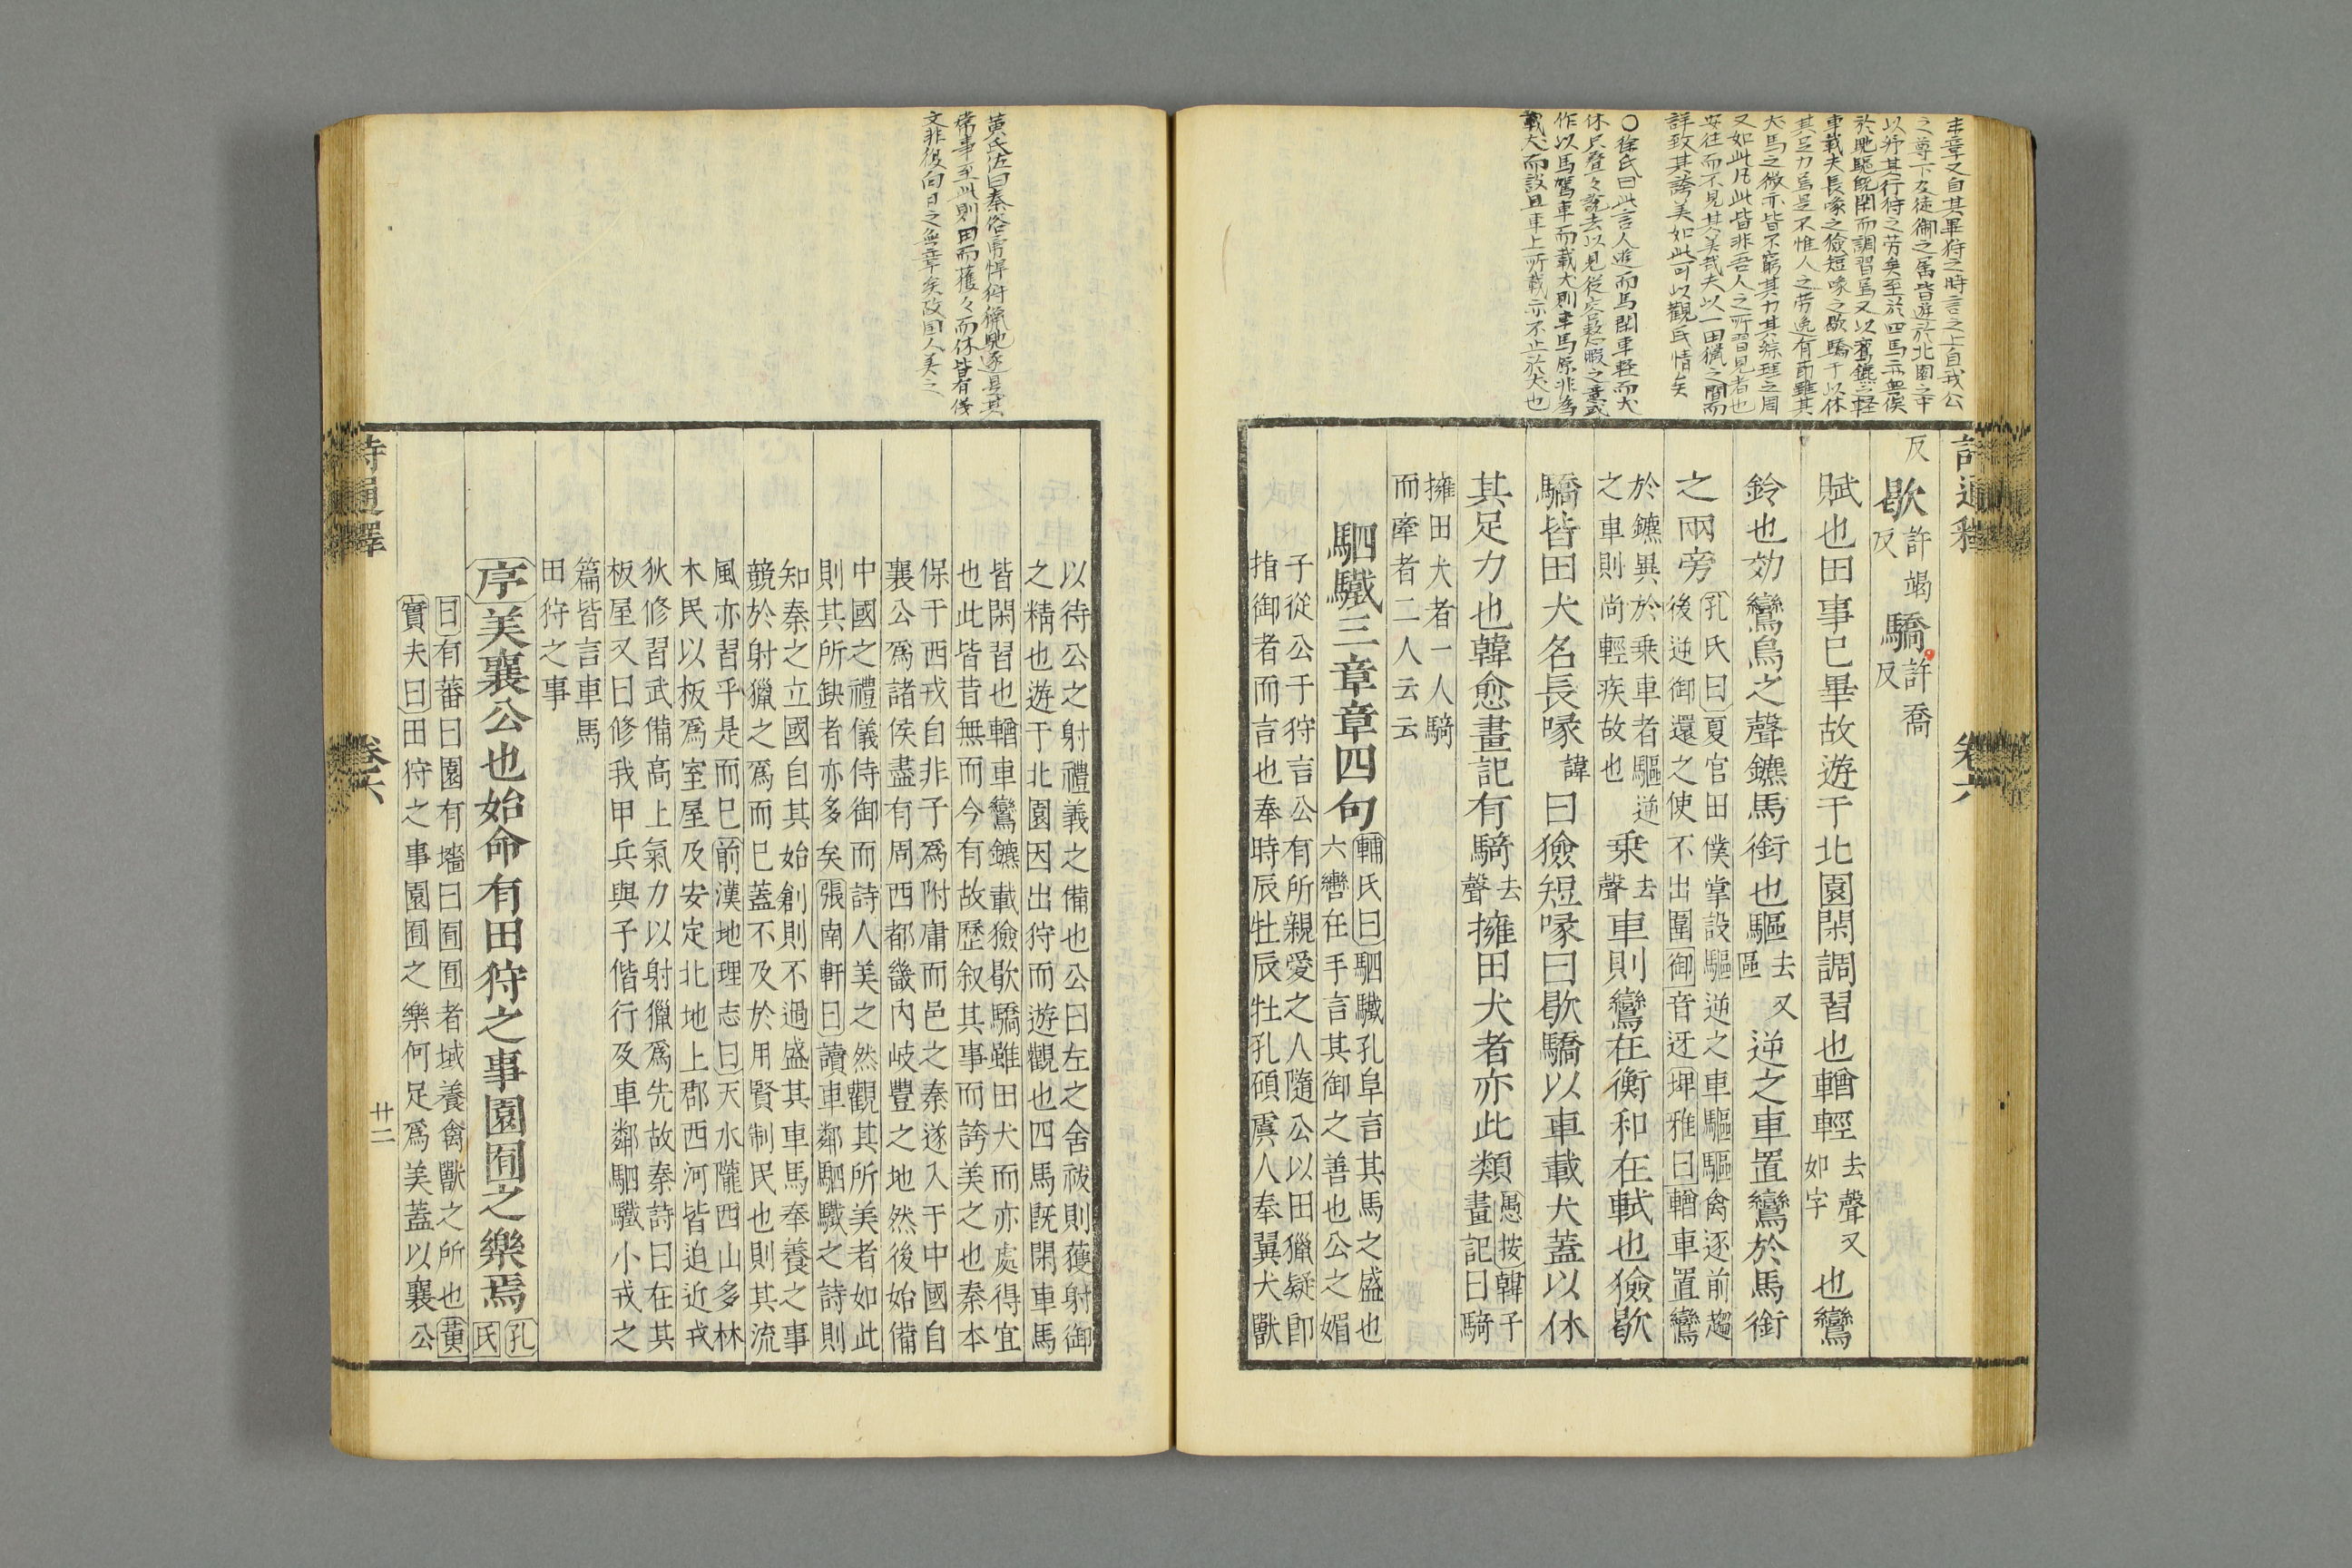 末章又自其畢狩之時言之上自我公
之尊下及徒御之屬皆遊於北園之中
以紓其行狩之労矣至於四馬亦無俟
於馳驅既閑而調習焉又以鸞鑣之輕
車載夫長喙之獫短喙之歇驕于以休
其足力焉是不惟人之労逸有節雖其
犬馬之微亦皆不窮其力其綜理之周
又如此凡此皆非吾人之所習見者也
安往而不見其美哉夫以一田猟之間而
詳致其誇美如此可以觀民情矣
○徐氏曰此言人遊而馬閑車輕而犬
作以馬駕車而載犬則車馬原非為
載犬而設且車上所載亦不止於犬也
詩通釋
卷六
反歇許竭反驕許喬反
賦也田事已畢故遊于北園閑調習也輶輕去聲又如字也鸞
鈴也効鸞鳥之聲鑣馬銜也驅去又區逆之車置鸞於馬銜
之兩旁孔氏曰夏官田僕掌設驅逆之車驅驅禽逐前趨
後逆御還之使不出圍御音迓埤雅曰輶車置鸞
於鑣異於乗車者驅逆
之車則尚輕疾故也乗去聲車則鸞在衡和在軾也獫歇
驕皆田犬名長喙諱曰獫短喙曰歇驕以車載犬蓋以休
其足力也韓愈畫記有騎去聲擁田犬者亦此類愚按韓子畫記曰騎
擁田犬者一人騎
而牽者二人云云
駟驖三章章四句輔氏曰駟驖孔阜言其馬之盛也
六轡在手言其御之善也公之媚
子從公于狩言公有所親愛之人隨公以田獵疑卽
指御者而言也奉時辰牡辰牡孔碩虞人奉翼犬獸
以待公之射禮義之備也公曰左之舍祓則獲射御
之精也遊于北園因出狩而遊觀也四馬既閑車馬
皆閑習也輶車鸞鑣載獫歇驕雖田犬而亦處得宜
也此皆昔無而今有故歷叙其事而誇美之也秦本
保干西戎自非子爲附庸而邑之秦遂入于中國自
襄公爲諸侯盡有周西都畿内岐豐之地然後始備
中國之禮儀侍御而詩人美之然觀其所美者如此
則其所缺者亦多矣張南軒曰讀車鄰駟驖之詩則
知秦之立國自其始創則不過盛其車馬奉養之事
競於射獵之爲而已蓋不及於用賢制民也則其流
風亦習乎是而已前漢地理志曰天水隴西山多林
木民以板爲室屋及安定北地上郡西河皆迫近戎
狄修習武備高上氣力以射獵爲先故秦詩曰在其
板屋又曰修我甲兵與子偕行及車鄰駟驖小戎之
篇皆言車馬
田狩之事
序美襄公也始命有田狩之事園囿之樂焉孔氏
曰有蕃曰園有墻曰囿囿者域養禽獸之所也黃
實夫曰田狩之事園囿之樂何足爲美蓋以襄公
詩通釋
卷六
廿二
黄氏佐曰秦俗
常事至此則田而獲々而休皆有儀
文非復向日之無章矣故国人美之